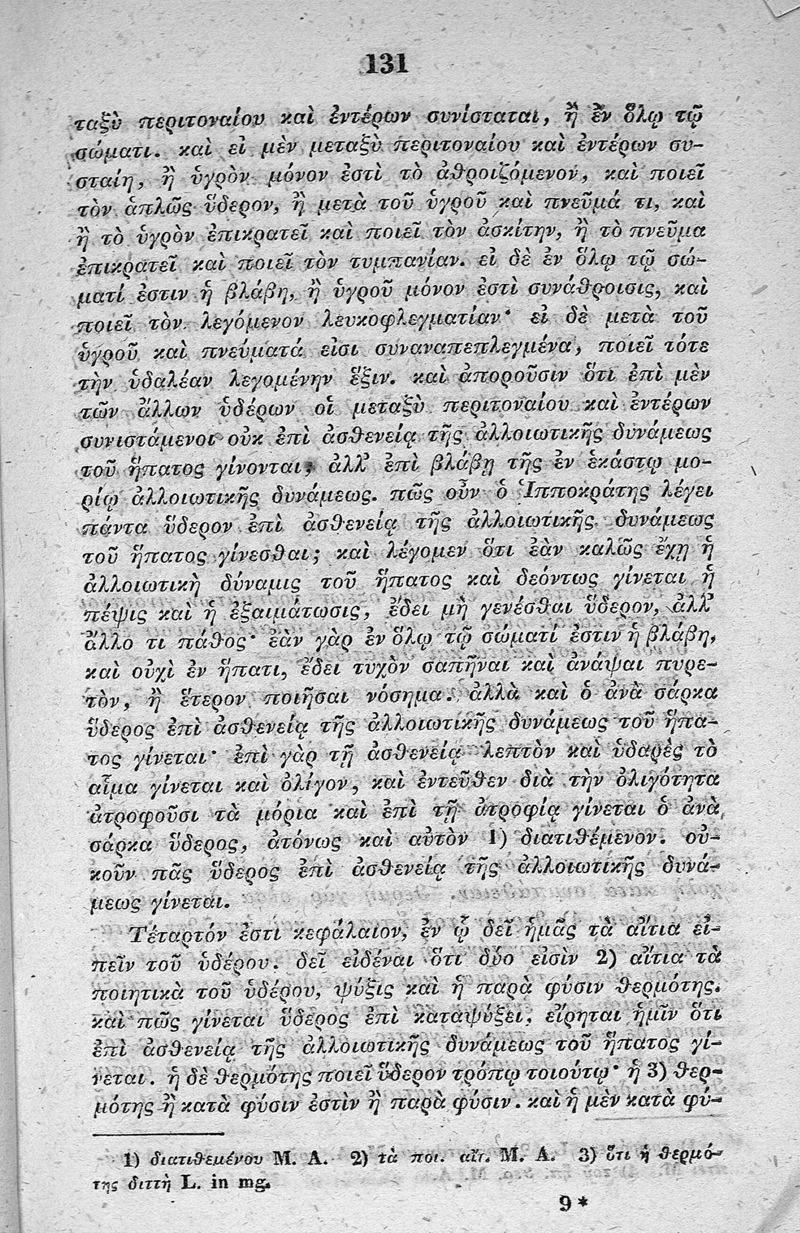 131
ταξὺ περιτοναίου καὶ ἐντέρων συνίσταται, ἢ ἐν ὅλῳ τῷ
σώματι. καὶ εἰ μὲν μεταξὺ περιτοναίου καὶ ἐντέρων συ-
σταίη, ἢ ὑγρὸν μόνον ἐστὶ τὸ ἀθροιζόμενον, καὶ ποιεῖ
τὸν ἁπλῶς ὕδερον, ἢ μετὰ τοῦ ὑγροῦ καὶ πνεῦμά τι, καὶ
ἢ τὸ ὑγρὸν ἐπικρατεῖ καὶ ποιεῖ τὸν ἀσκίτην, ἢ τὸ πνεῦμα
ἐπικρατεῖ καὶ ποιεῖ τὸν τυμπανίαν. εἰ δὲ ἐν ὅλῳ τῷ σώ-
ματί ἐστιν ἡ βλάβη, ἢ ὑγροῦ μόνον ἐστὶ συνάθροισις, καὶ
ποιεῖ τὸν λεγόμενον λευκοφλεγματίαν· εἰ δὲ μετὰ τοῦ
ὑγροῦ καὶ πνεύματά εἰσι συναναπεπλεγμένα, ποιεῖ τότε
τὴν ὑδαλέαν λεγομένην ἕξιν. καὶ ἀποροῦσιν ὅτι ἐπὶ μὲν
τῶν ἄλλων ὑδέρων οἱ μεταξὺ περιτοναίου καὶ ἐντέρων
συνιστάμενοι οὐκ ἐπὶ ἀσθενείᾳ τῆς ἀλλοιωτικῆς δυνάμεως
τοῦ ἥπατος γίνονται, ἀλλ' ἐπὶ βλάβῃ τῆς ἐν ἑκάστῳ μο-
ρίῳ ἀλλοιωτικῆς δυνάμεως. πῶς οὖν ὁ Ἱπποκράτης λέγει
πάντα ὕδερον ἐπὶ ἀσθενείᾳ τῆς ἀλλοιωτικῆς δυνάμεως
τοῦ ἥπατος γίνεσθαι; καὶ λέγομεν ὅτι ἐὰν καλῶς ἔχῃ ἡ
ἀλλοιωτικὴ δύναμις τοῦ ἥπατος καὶ δεόντως γίνεται ἡ
πέψις καὶ ἡ ἐξαιμάτωσις, ἔδει μὴ γενέσθαι ὕδερον, ἀλλ'
ἄλλο τι πάθος· ἐὰν γὰρ ἐν ὅλῳ τῷ σώματί ἐστιν ἡ βλάβη,
καὶ οὐχὶ ἐν ἥπατι, ἔδει τυχὸν σαπῆναι καὶ ἀνάψαι πυρε-
τὸν, ἢ ἕτερον ποιῆσαι νόσημα. ἀλλὰ καὶ ὁ ἀνὰ σάρκα
ὕδερος ἐπὶ ἀσθενείᾳ τῆς ἀλλοιωτικῆς δυνάμεως τοῦ ἥπα-
τος γίνεται· ἐπὶ γὰρ τῇ ἀσθενείᾳ λεπτὸν καὶ ὑδαρὲς τὸ
αἷμα γίνεται καὶ ὀλίγον, καὶ ἐντεῦθεν διὰ τὴν ὀλιγότητα
ἀτροφοῦσι τὰ μόρια καὶ ἐπὶ τῇ ἀτροφίᾳ γίνεται ὁ ἀνὰ
σάρκα ὕδερος, ἀτόνως καὶ αὐτὸν 1) διατιθέμενον. οὐ-
κοῦν πᾶς ὕδερος ἐπὶ ἀσθενείᾳ τῆς ἀλλοιωτικῆς δυνά-
μεως γίνεται.
Τέταρτόν ἐστι κεφάλαιον, ἐν ᾧ δεῖ ἡμᾶς τὰ αἴτια εἰ-
πεῖν τοῦ ὑδέρου. δεῖ εἰδέναι ὅτι δύο εἰσὶν 2) αἴτια τὰ
ποιητικὰ τοῦ ὑδέρου, ψύξις καὶ ἡ παρὰ φύσιν θερμότης.
καὶ πῶς γίνεται ὕδερος ἐπὶ καταψύξει, εἴρηται ἡμῖν ὅτι
ἐπὶ ἀσθενείᾳ τῆς ἀλλοιωτικῆς δυνάμεως τοῦ ἥπατος γί-
νεται. ἡ δὲ θερμότης ποιεῖ ὕδερον τρόπῳ τοιούτῳ· ἡ 3) θερ-
μότης ἢ κατὰ φύσιν ἐστὶν ἢ παρὰ φύσιν. καὶ ἡ μὲν κατὰ φύ-
1) διατιθεμένου M. A. 2) τὰ ποι. αἴτ. M. A. 3) ὅτι ἡ θερμό-
της διττὴ L. in mg.
9*